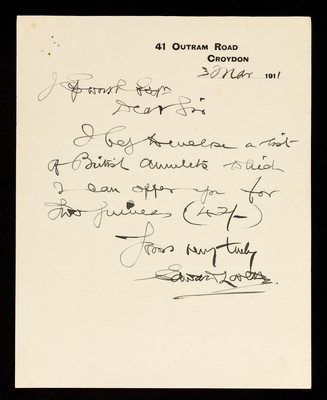 41 OUTRAM ROAD
CROYDON
3 Mar 1911
J Esqr
Dear Sir
I beg to enclose a list
of British amulets which
I can offer you for
two guineas (42/-)
Yours very truly
Edward Lovett.